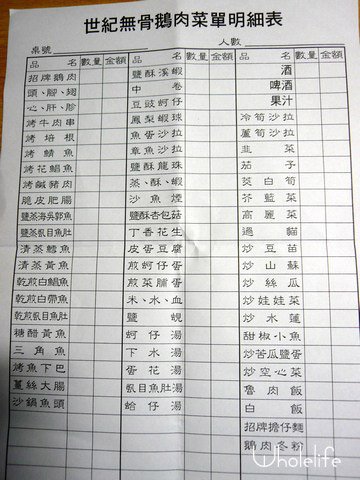 世紀無骨鵝肉菜單明細表
桌號 人數
品名 數量 金額 品名 數量 金額 品名 數量 金額
招牌鵝肉 鹽酥溪蝦 酒
頭、腳、翅 中卷 啤酒
心、肝、胗 豆豉蚵仔 果汁
烤牛肉串 鳳梨蝦球 冷筍沙拉
烤培根 魚蛋沙拉 蘆筍沙拉
烤鯖魚 章魚沙拉 韭菜
烤花鯧魚 鹽酥龍珠 茄子
烤鹹豬肉 蒸、酥、蝦 茭白筍
脆皮肥腸 沙魚煙 芥藍菜
鹽蒸海吳郭魚 鹽酥杏包菇 高麗菜
鹽蒸虱目魚肚 丁香花生 過貓
清蒸鱈魚 皮蛋豆腐 炒豆苗
清蒸黃魚 煎蚵仔蛋 炒山蘇
乾煎白鯧魚 煎菜脯蛋 炒絲瓜
乾煎白帶魚 米、水、血 炒娃娃菜
乾煎虱目魚肚 鹽蜆 炒水蓮
糖醋黃魚 蚵仔湯 甜椒小魚
三角魚 下水湯 炒苦瓜鹽蛋
烤魚下巴 蛋花湯 炒空心菜
薑絲大腸 虱目魚肚湯 魯肉飯
沙鍋魚頭 蛤仔湯 白飯
招牌擔仔麵
鵝肉冬粉
Wholelife